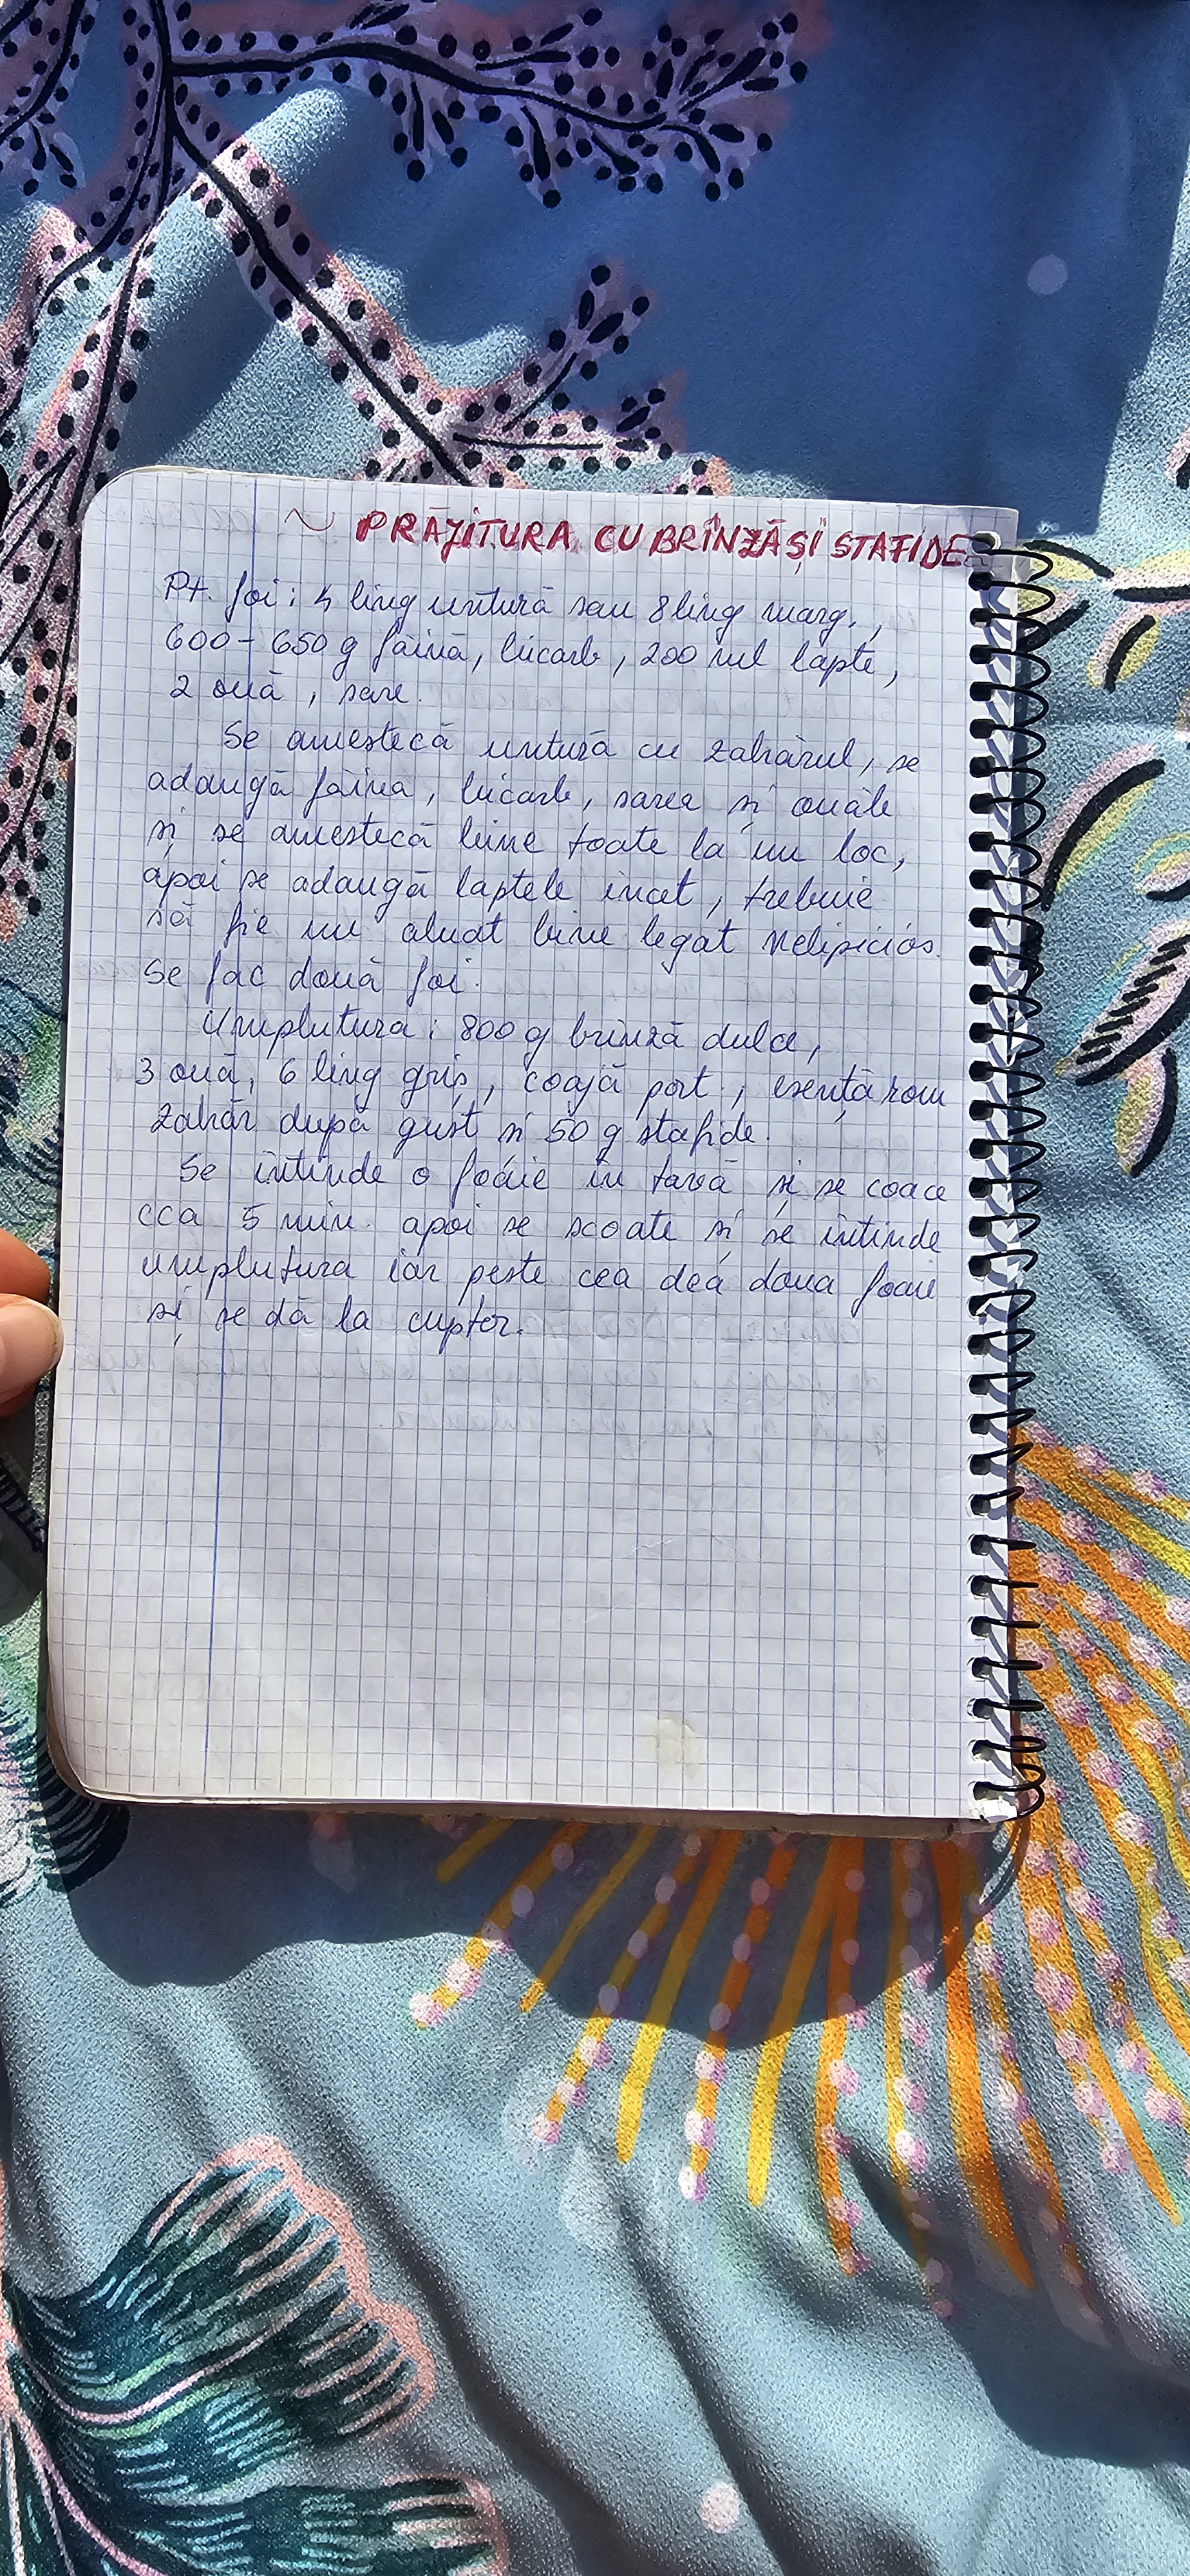 ~ PRĂJITURA CU BRÎNZĂ ȘI STAFIDE
Pt. foi: 4 ling untură sau 8 ling marg.,
600-650 g făină, bicarb, 200 ml lapte,
2 ouă, sare.
Se amestecă untură cu zahărul, se
adaugă făina, bicarb, sarea și ouăle
și se amestecă bine toate la un loc,
apoi se adaugă laptele incet, trebuie
să fie un aluat bine legat nelipicios.
Se fac două foi.
Umplutura: 800 g brînză dulce,
3 ouă, 6 ling griș, coajă port., esență rom
zahăr după gust și 50 g stafide.
Se întinde o foaie în tavă și se coace
cca 5 min. apoi se scoate și se întinde
umplutura iar peste cea dea doua foaie
și se dă la cuptor.